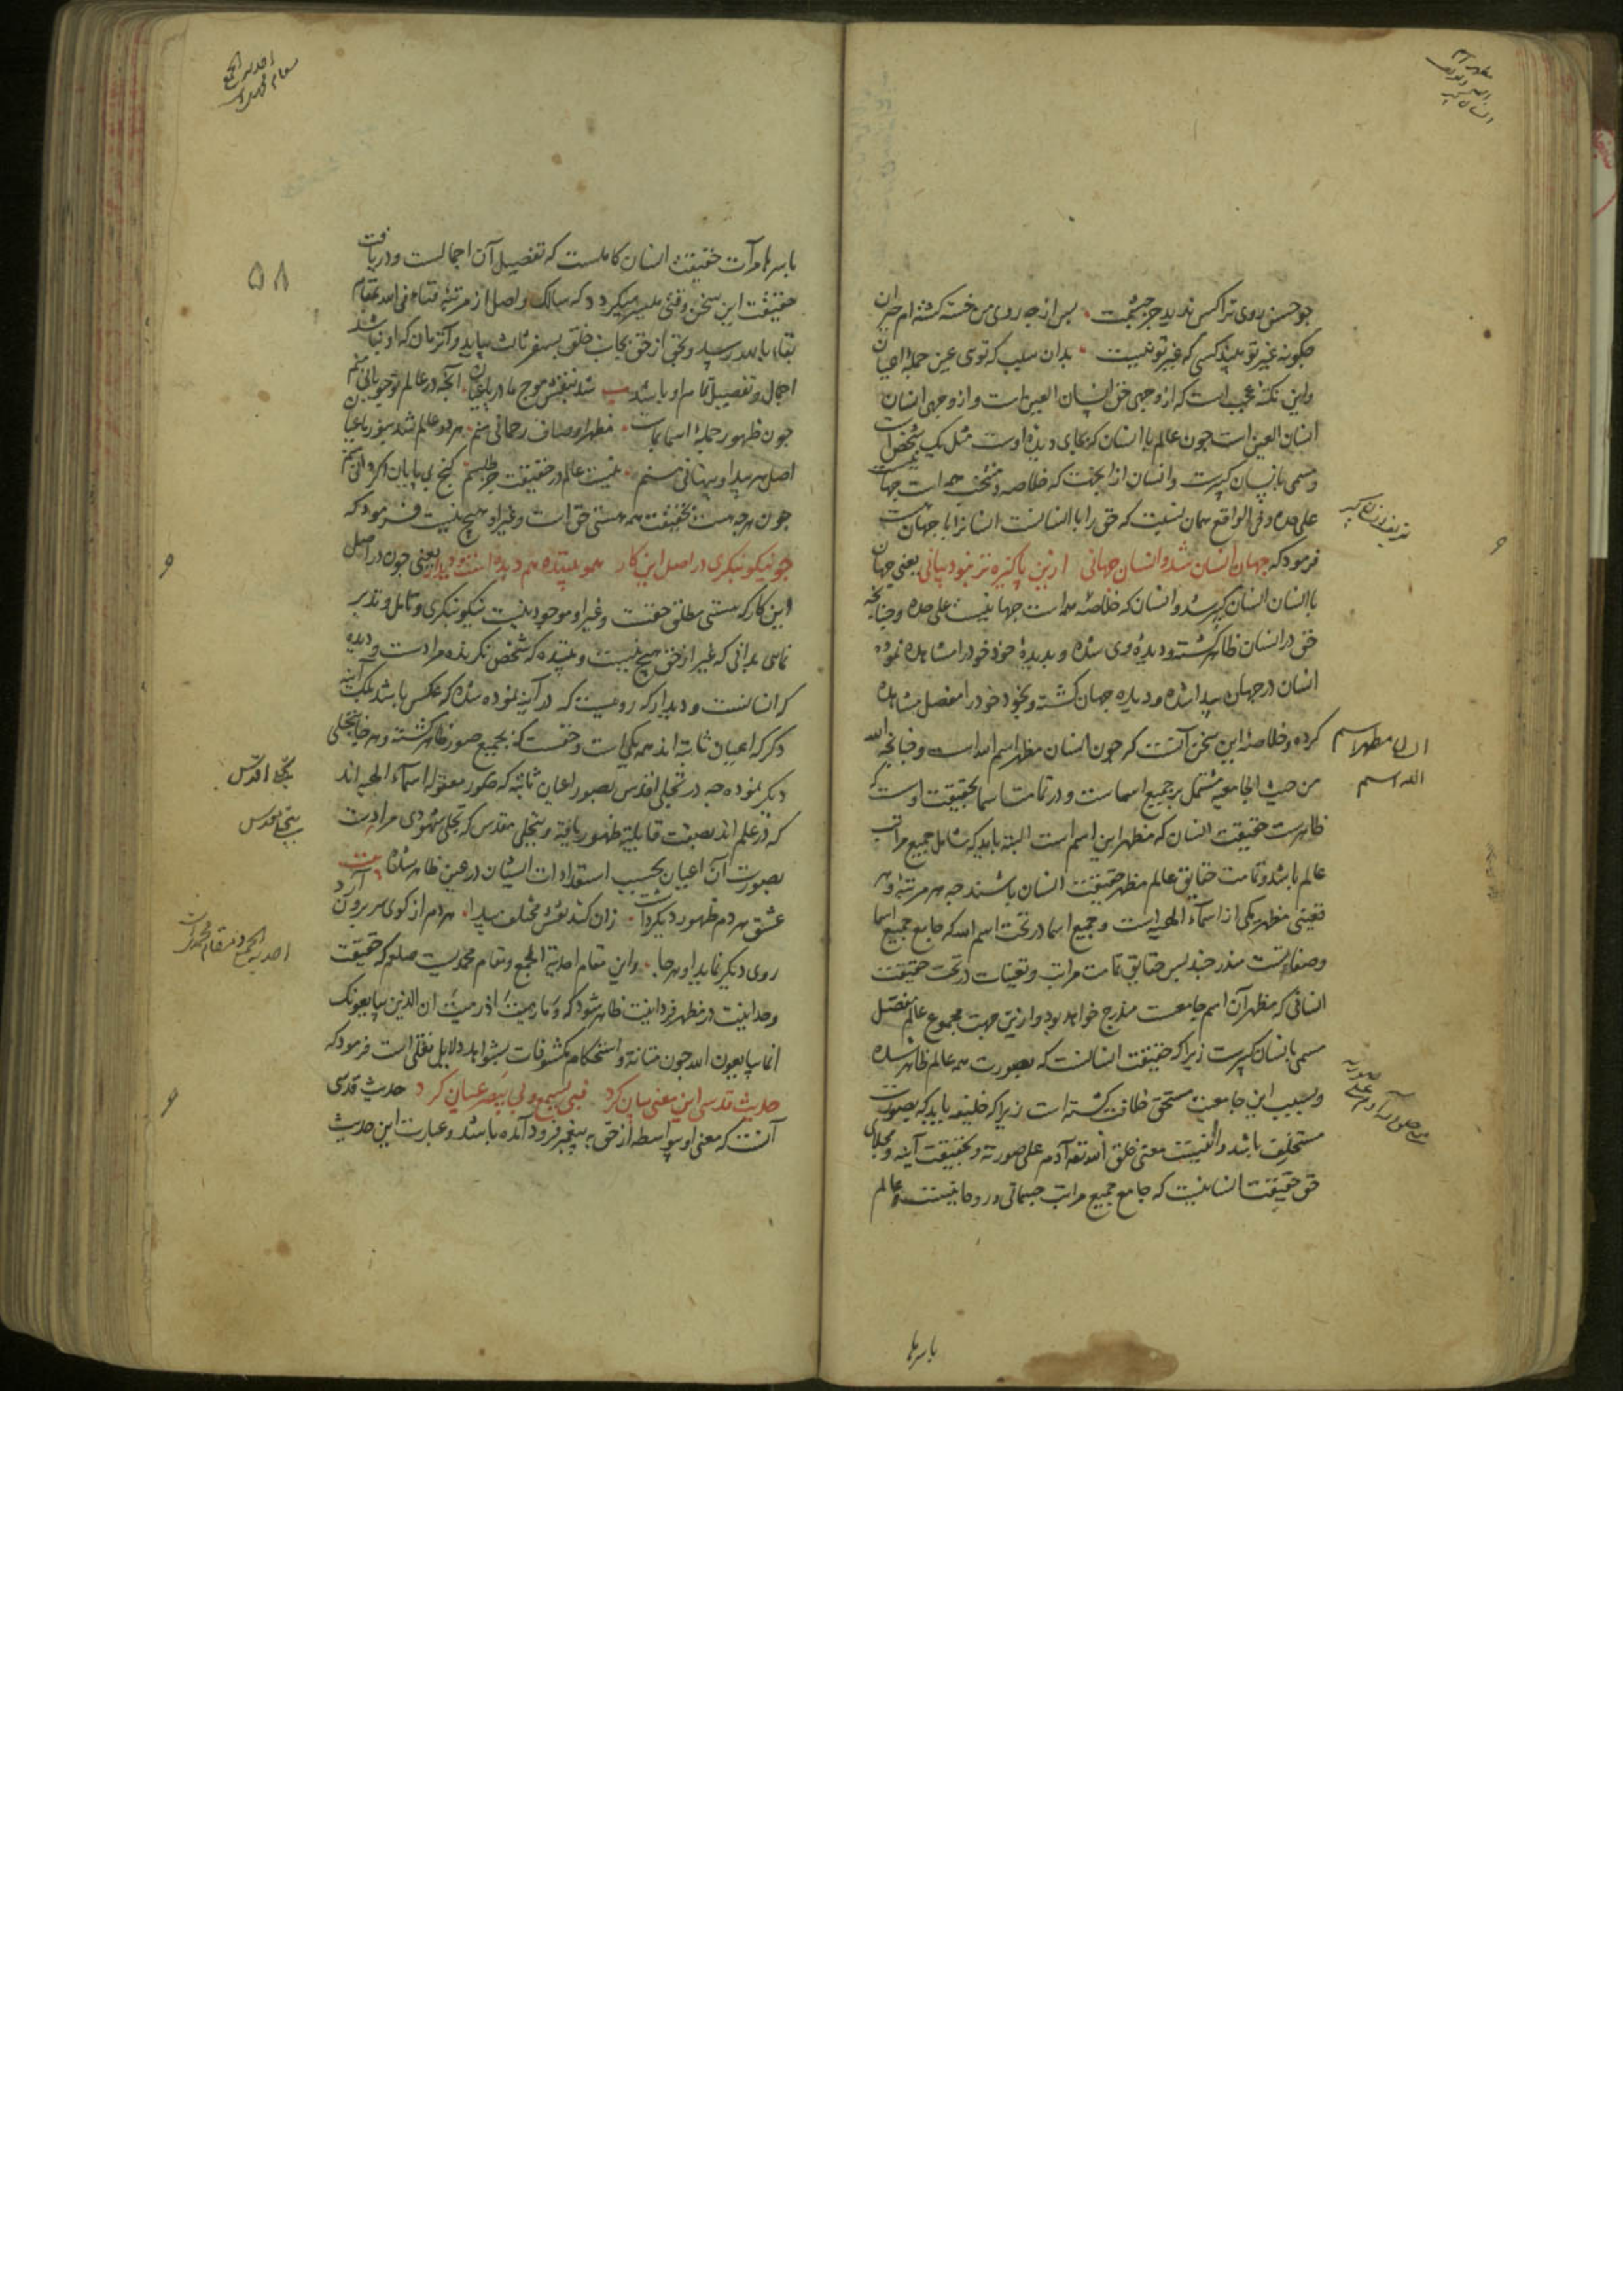 چو حسن روی ترا کس ندید جز چشمت پس از چه روی من خسته گشته ام حیران
چکونه غیر تو بیند کسی که غیر تو نیست بدان سبب که توی عین جمله اعیان
واین نکته عجب است که از وجهی حق انسان العین است و از وجهی انسان
انسان العین است چون عالم با انسان که بجای دیده اوست مثل یک شخص است
ومسمی بانسان کبیرست وانسان ازین جهت که خلاصه ومنتخب همه است جهانیست
علی حده وفی الواقع همان نسبت که حق را با انسانست انسانرا با جهان است
فرمود که جهان انسان شد وانسان جهانی ازین پاکیزه تر نبود بیانی یعنی جهان
با انسان انسان کبیر شد وانسان که خلاصه همه است جهانیست علی حده وچنانچه
حق در انسان ظاهر گشته ودیده وی شده وبدیده خود خود را مشاهده نموده
انسان در جهان پیدا شده ودیده جهان کشته وبخود خود را مفصل مشاهده
کرده وخلاصه این سخن آنست که چون انسان مظهر اسم الله است وچنانچه الله
من حیث الجامعیه مشتمل بر جمیع اسماست و در تمامت اسما بحقیقت اوست که
ظاهرست حقیقت انسان که مظهر این اسم است البته باید که شامل جمیع مراتب
عالم باشد وتمامت حقایق عالم مظهر حقیقت انسان باشند چه هر مرتبه وهر
تعینی مظهر یکی از اسماء الهیه است وجمیع اسما در تحت اسم الله که جامع جمیع اسما
وصفاتست مندرجند پس حقایق تمامت مراتب وتعینات در تحت حقیقت
انسانی که مظهر آن اسم جامعست مندرج خواهد بود وازین جهت مجموع عالم مفصل
مسمی بانسان کبیرست زیرا که حقیقت انسانست که بصورت همه عالم ظاهر شده
وبسبب این جامعیت مستحق خلافت کشته است زیرا که خلیفه باید که بصورت
مستخلف باشد واینست معنی خلق الله تعه آدم علی صورته وبحقیقت آینه ومجلای
حق حقیقت انسانیست که جامع جمیع مراتب جسمانی وروحانیست وعالم
انسان مظهر اسم
الله اسم
باسرها
باسرها مرآت حقیقت انسان کاملست که تفصیل آن اجمالست ودریافت
حقیقت این سخن وقتی میسر میکردد که سالک واصل از مرتبه فناء فی الله بمقام
بقاء بالله رسد وبحق از حق بجانب خلق بسفر ثالث بیاید وآنزمان که او نباشد
اجمال وتفصیل تمام او باشد شد بنقش موج ما دریا عیان آنچه در عالم تو جویائی منم
چون ظهور جمله اسما بماست مظهر اوصاف رحمانی منم هر دو عالم شد بنور ما عیان
اصل هر پیدا وپنهانی منم نیست عالم در حقیقت جز طلسم کنج بی پایان اکر دانی منم
چون هرچه هست بحقیقت همه هستی حق است وغیر او هیچ نیست فرمود که
چو نیکو بنکری در اصل این کار همو بیننده هم دیده است ودیدار یعنی چون در اصل
این کار که هستی مطلق حقست وغیر او موجود نیست نیکو بنکری وتامل وتدبر
نمائی بدانی که غیر از حق هیچ نیست وبیننده که شخص نکرنده مرادست ودیده
که انسانست ودیدار که رویست که در آینه نموده شده که عکس باشد بلکه آینه
دکر که اعیان ثابته اند همه یکی است وحقست که بجمیع صور ظاهر گشته وهر جا بتجلی
دیکر نموده چه در تجلی اقدس بصور اعیان ثابته که صور معقوله اسماء الهیه اند
که در علم اند بصفت قابلیه ظهور یافته وبتجلی مقدس که تجلی شهودی مرادست
بصورت آن اعیان بحسب استعدادات ایشان در عین ظاهر شده بیت
عشق هر دم ظهور دیکر داشت زان کند نقش مختلف پیدا هر دم از کوی سر برون آرد
روی دیکر نماید او هر جا واین مقام احدیة الجمع ومقام محمدیست صلعم که حقیقت
وحدانیت در مظهر فردانیت ظاهر شود که وما رمیت اذ رمیت ان الذین یبایعونک
انما یبایعون الله چون متانة واستحکام مکشوفات بشواهد دلایل نقلی است فرمود که
حدیث قدسی این معنی بیان کرد فبی یسمع وبی یبصر عیان کرد حدیث قدسی
آنست که معنی او بیواسطه از حق به پیغمبر فرود آمده باشد وعبارت این حدیث
۵۸
تجلی اقدس
تجلی مقدس
احدیة الجمع ومقام محمدیست